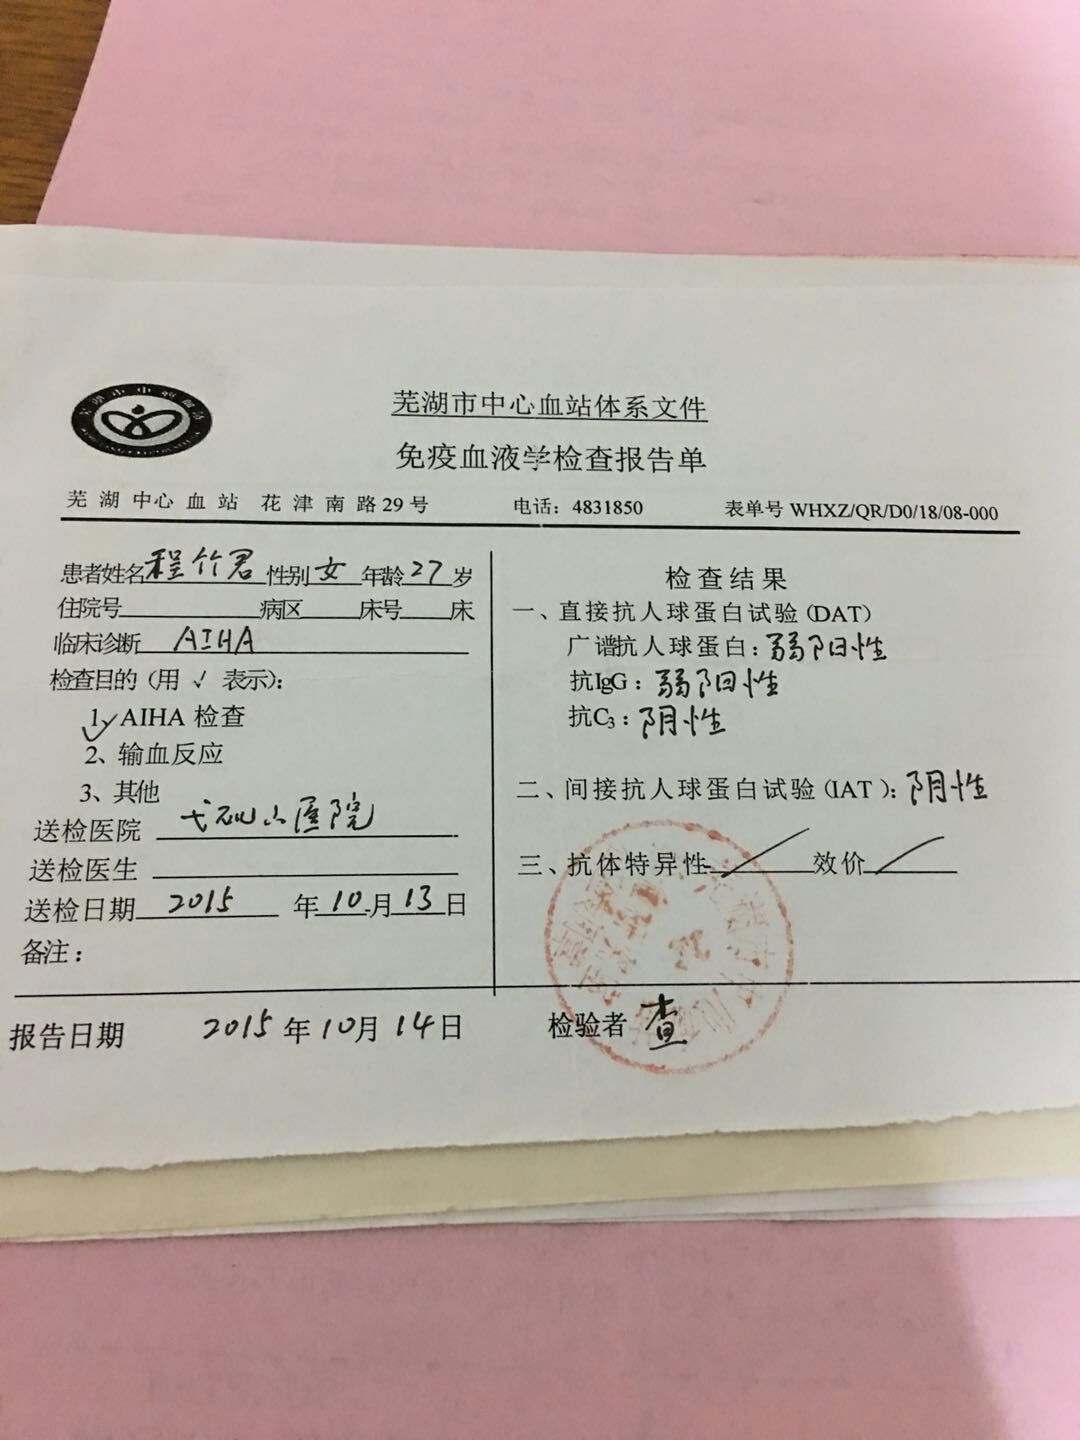 芜湖市中心血站体系文件
免疫血液学检查报告单
芜湖中心血站 花津南路29号 电话：4831850 表单号 WHXZ/QR/D0/18/08-000
患者姓名程竹君性别女年龄27岁
住院号 病区 床号 床
临床诊断 AIHA
检查目的（用 √ 表示）：
1、AIHA 检查
2、输血反应
3、其他
送检医院 弋矶山医院
送检医生
送检日期 2015 年 10 月 13 日
备注：
检查结果
一、直接抗人球蛋白试验（DAT）
广谱抗人球蛋白：弱阳性
抗IgG：弱阳性
抗C₃：阴性
二、间接抗人球蛋白试验（IAT）：阴性
三、抗体特异性 效价
报告日期 2015年10月14日 检验者 查